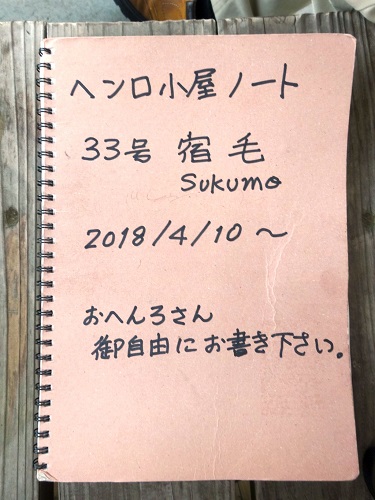 ヘンロ小屋ノート
33号 宿毛
Sukumo
2018/4/10〜
おへんろさん
御自由にお書き下さい。